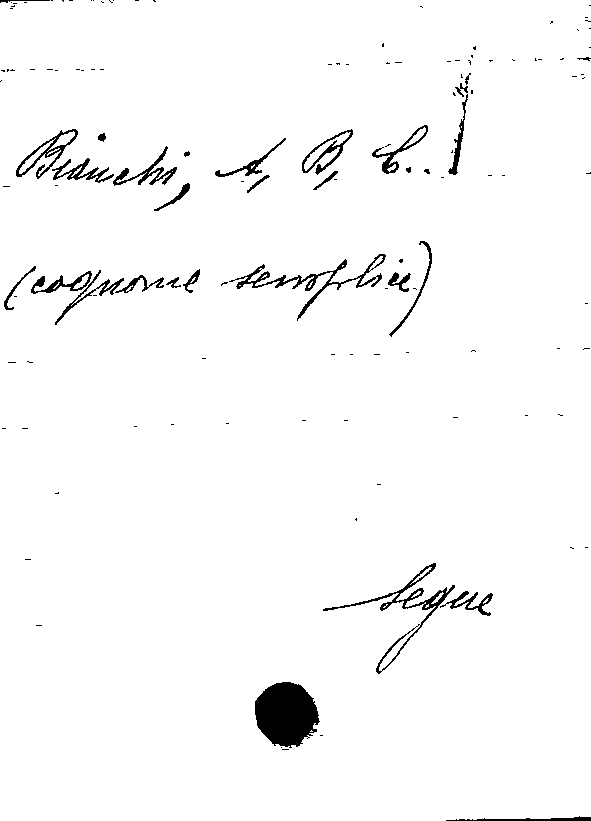 Bianchi, A, B, C..
(cognome semplice)
segue